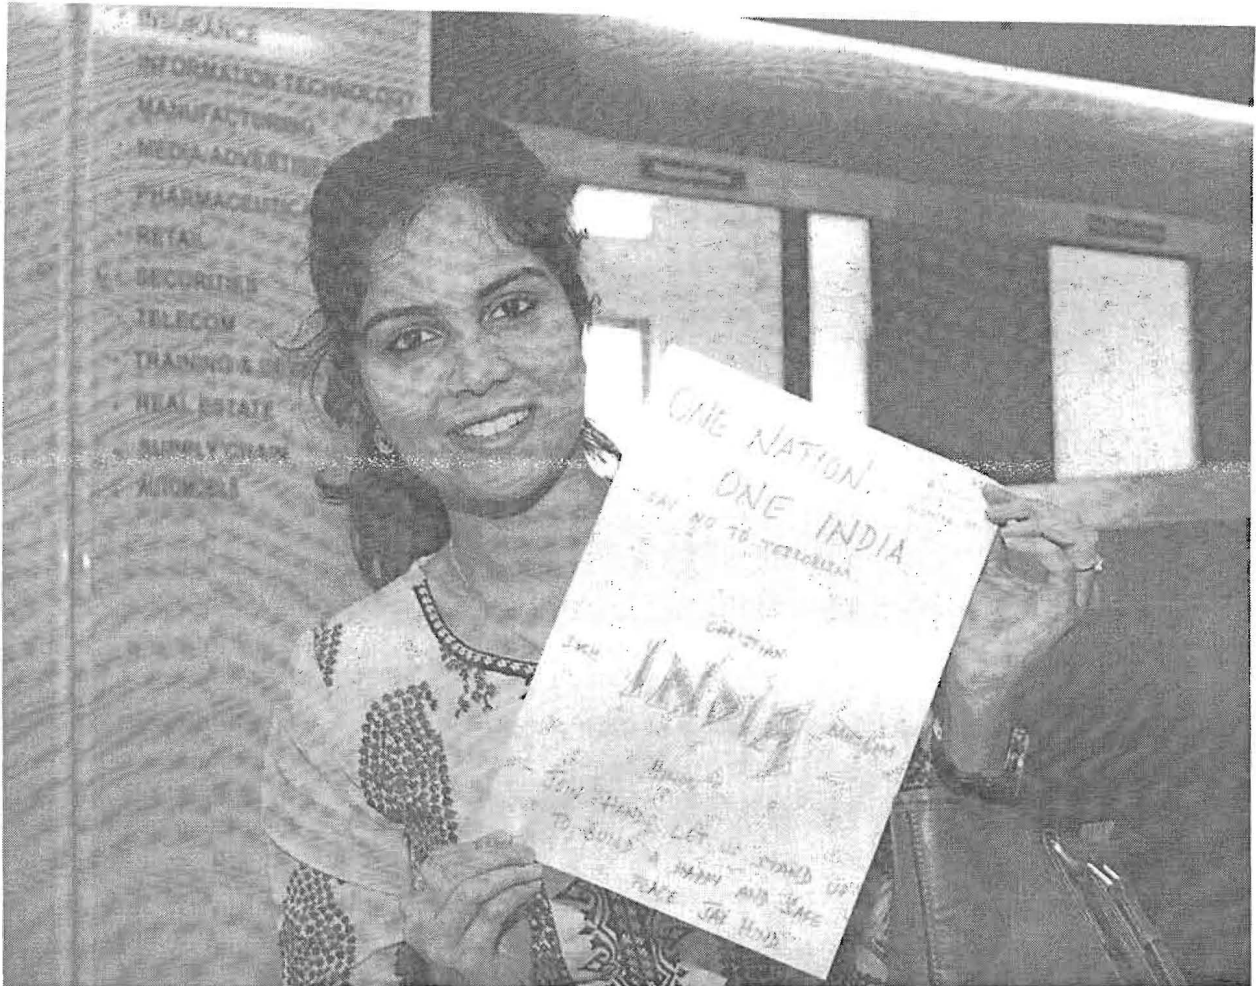 INSURANCE
INFORMATION TECHNOLOGY
MANUFACTURING
MEDIA ADVERTIS
PHARMACEUTICA
RETAIL
SECURITIES
TELECOM
TRAINING & DE
REAL ESTATE
SUPPLY CHAIN
AUTOMOBILE
ONE NATION
ONE INDIA
SAY NO TO TERRORISM
CHRISTIAN
SIKH
INDIA
MUSLIM
JOIN HANDS LET US STAND UP
TO BUILD A HAPPY AND SAFE
PLACE JAI HIND